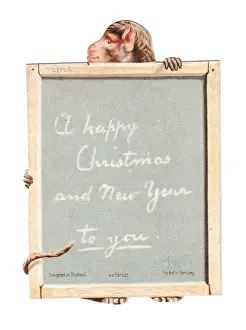 A happy
Christmas
and New Year
to you.
Designed in England
Printed in Germany